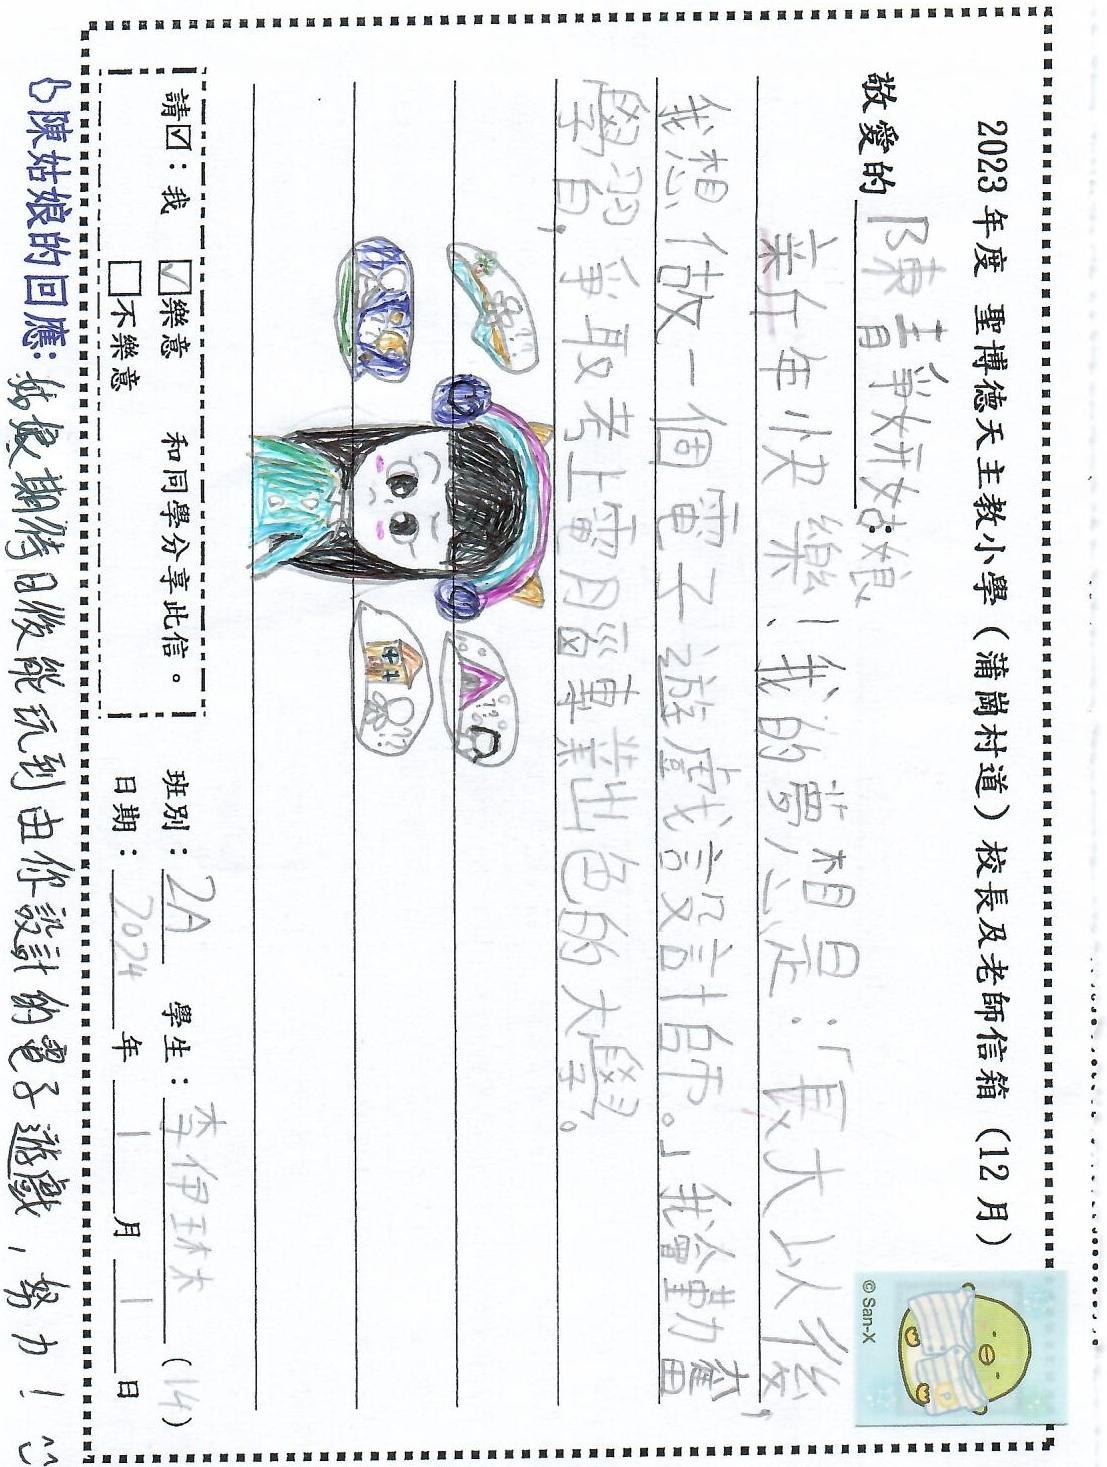 2023 年度 聖博德天主教小學（蒲崗村道）校長及老師信箱（12 月）
敬愛的 陳靜妍姑娘：
新年快樂！我的夢想是：「長大以後，
我想做一個電子遊戲設計師。」我會勤奮
學習，爭取考上電腦專業出色的大學。
??
??
!?
請☑：我 ☑樂意 和同學分享此信。
□不樂意
班別：2A 學生：李伊琳 (14)
日期：2024 年 1 月 1 日
陳姑娘的回應：姑娘期待日後能玩到由你設計的電子遊戲，努力！
© San-X